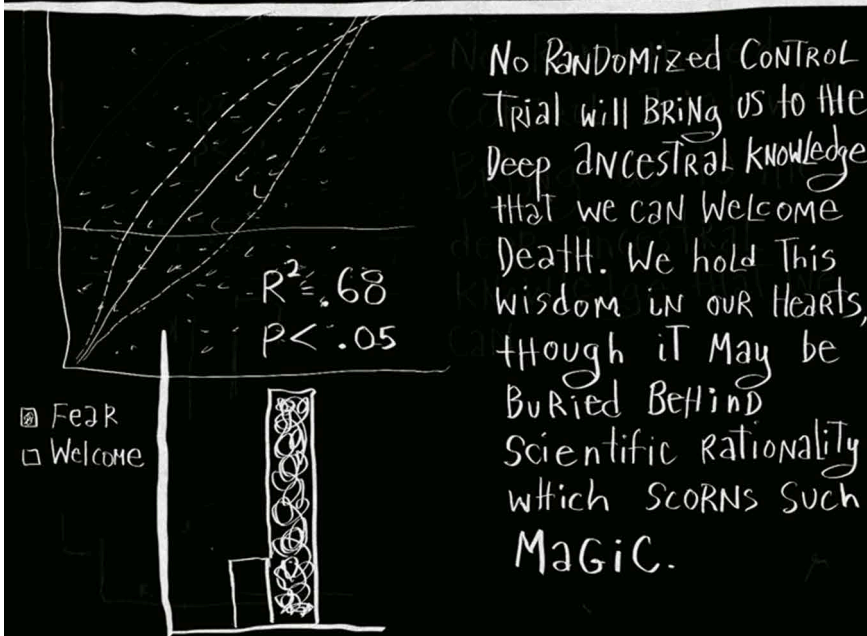 No RANDOMIZED CONTROL
TRIAL will BRING US to tHe
Deep ANCESTRAL KNOWLedge
tHAT we CAN WELCOME
DeatH. We hold This
wisdom iN OUR HeARTS,
tHough iT May be
BURieD BeHiND
Scientific RATIONALiTy
wHicH SCORNS SucH
MAGiC.
R² = .68
P < .05
FeaR
Welcome